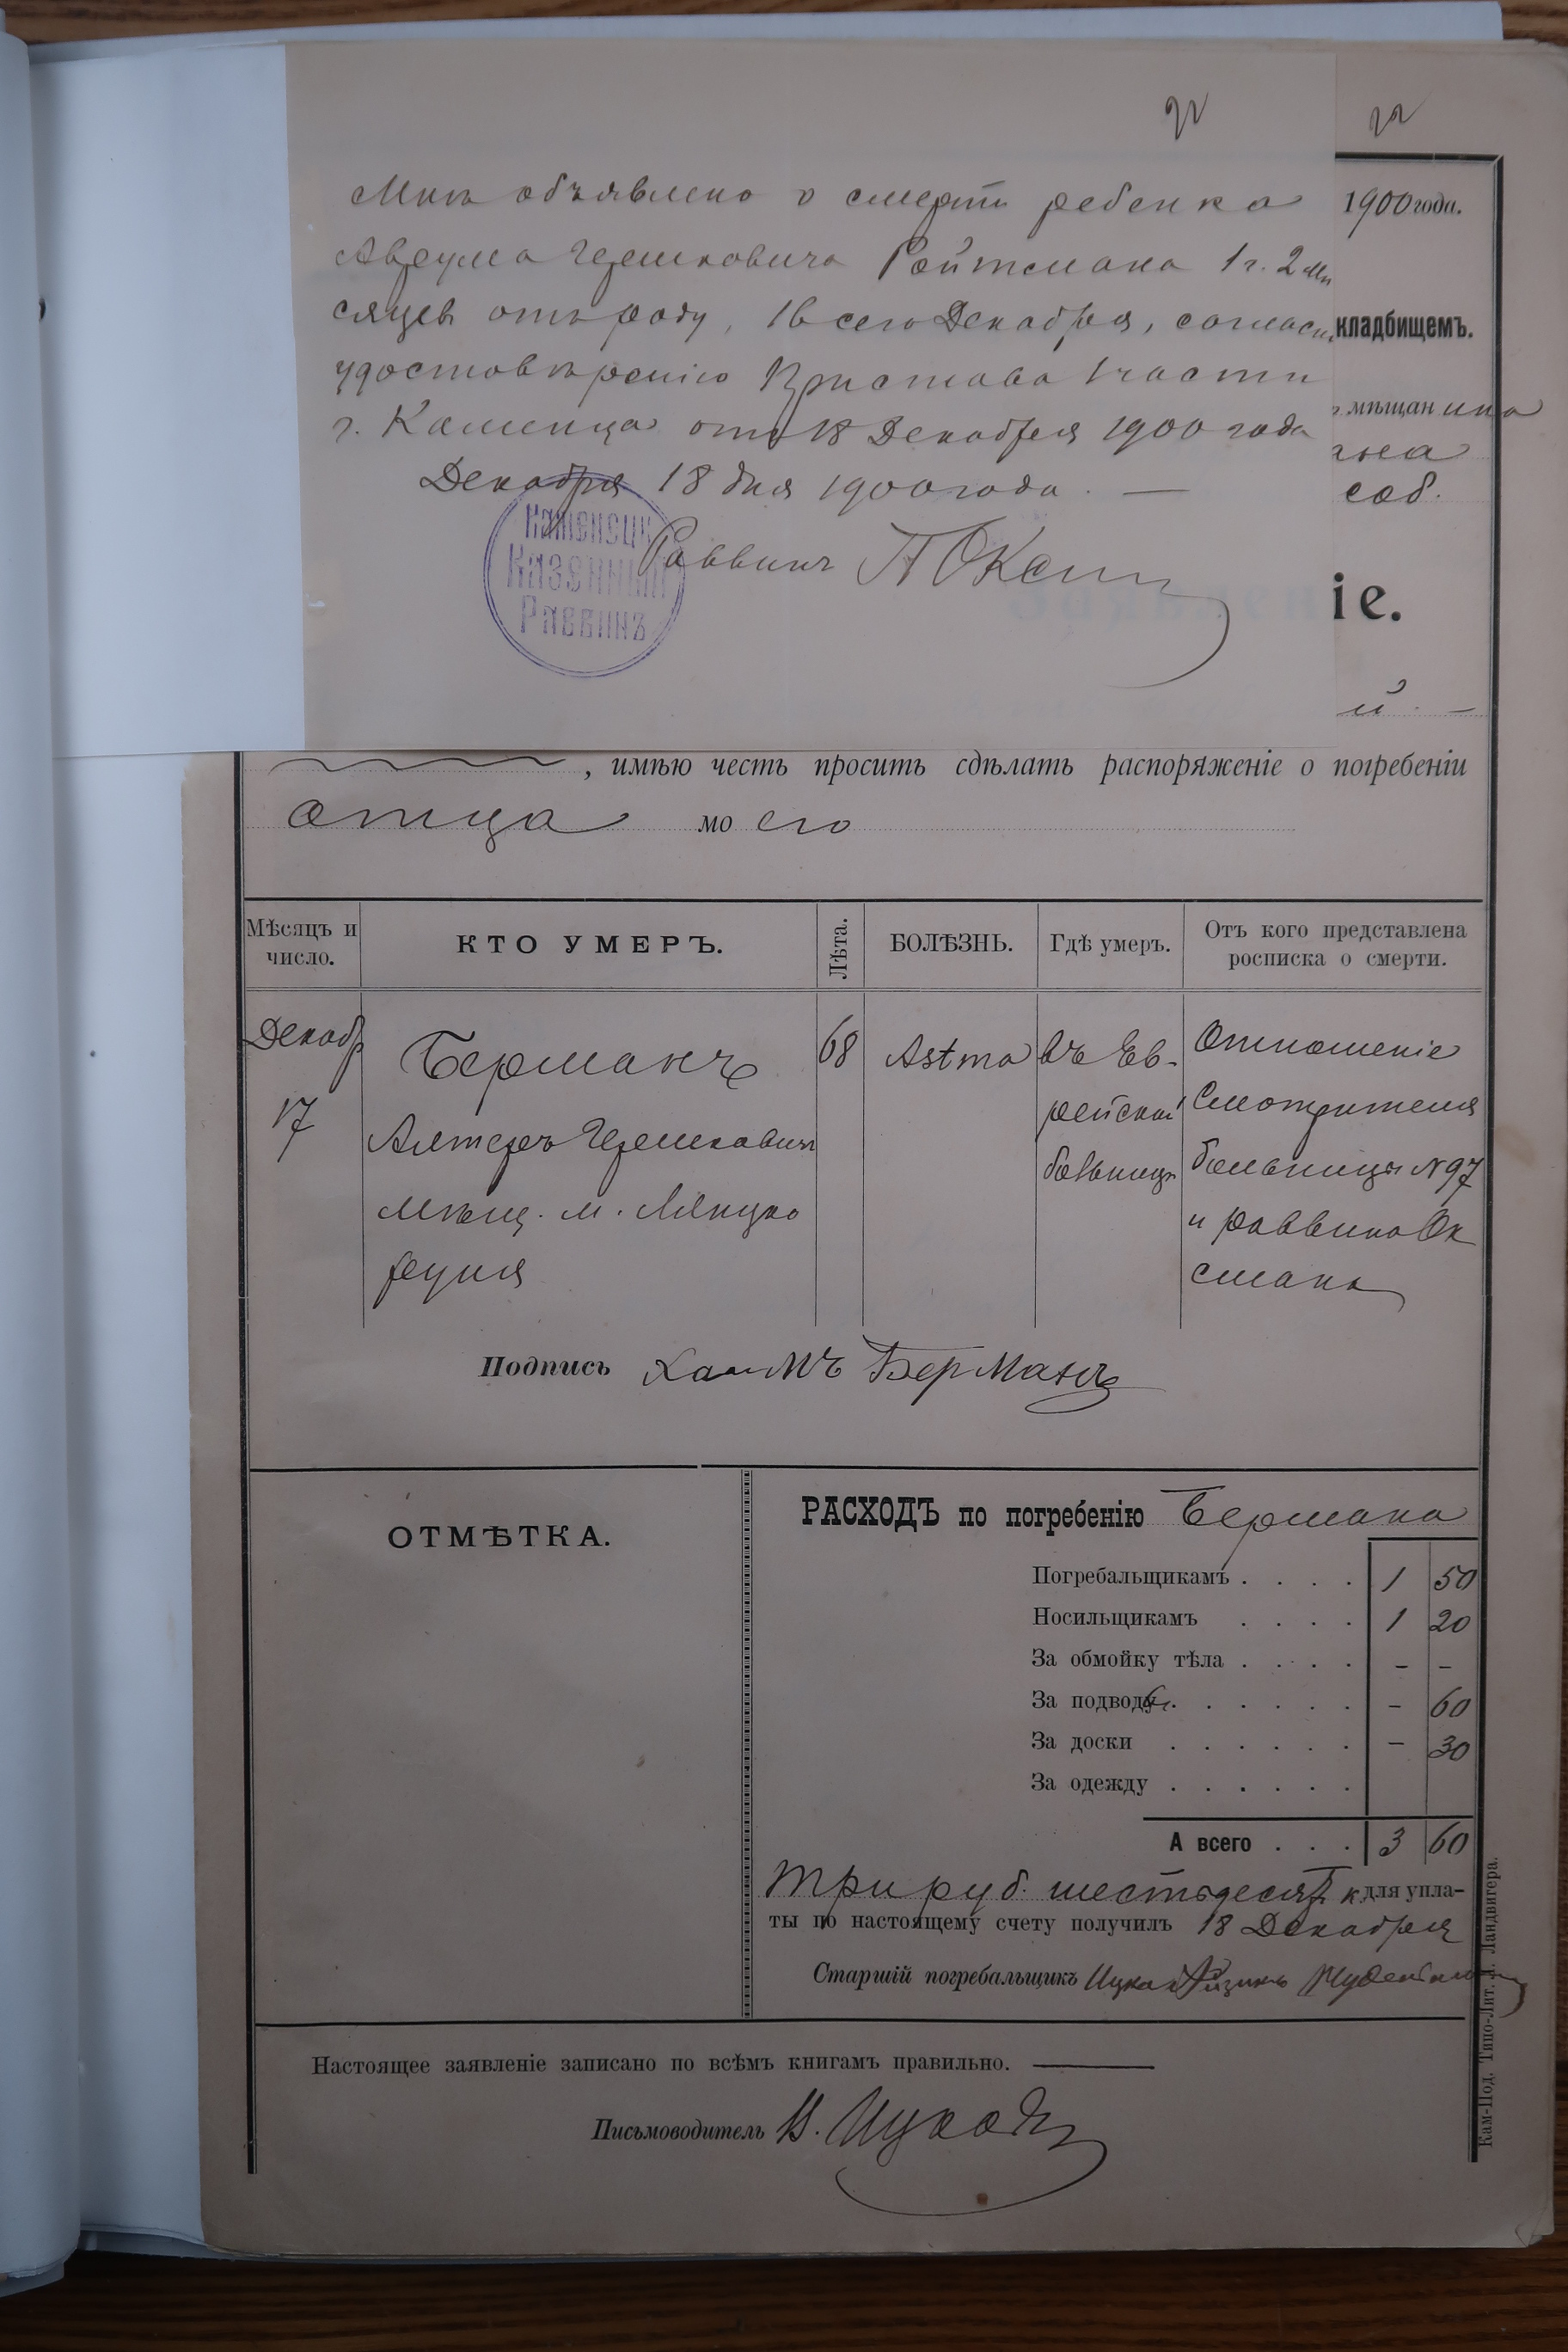 22
22
Мнѣ объявлено о смерти ребенка
Аврума Гершковича Ройтмана 1 г. 2 мѣ
сяцевъ отъ роду, 16 сего Декабря, согласн.
удостовѣренію Пристава 1 части
г. Каменца отъ 18 Декабря 1900 года
Декабря 18 дня 1900 года. —
Раввинъ
Каменецк
Казенный
Раввинъ
1900 года.
кладбищемъ.
мѣщанина
ана
соб.
іе.
й. —
, имѣю честь просить сдѣлать распоряженіе о погребеніи
отца моего
Мѣсяцъ и число.
КТО УМЕРЪ.
Лѣта.
БОЛѢЗНЬ.
Гдѣ умеръ.
Отъ кого представлена росписка о смерти.
Декабр
17
Берманъ
Алтеръ Гершковичъ
мѣщ. м. Лянцко
руня
68
Astma
въ Ев-
рейской
больницѣ
Отношеніе
Смотрителя
больницы N 97
и раввина Ок
смана
Подпись Хаимъ Берманъ
ОТМѢТКА.
РАСХОДЪ по погребенію Бермана
Погребальщикамъ . . . . 1 50
Носильщикамъ . . . . 1 20
За обмойку тѣла . . . . – –
За подводу . . . . . . – 60
За доски . . . . . . – 30
За одежду . . . . . .
А всего . . . 3 60
Три руб. шестьдесят к для упла-
ты по настоящему счету получилъ 18 Декабря
Старшій погребальщикъ Ицко Айзикъ
Настоящее заявленіе записано по всѣмъ книгамъ правильно.
Письмоводитель
Кам-Под. Типо-Лит. Л. Ландвигера.